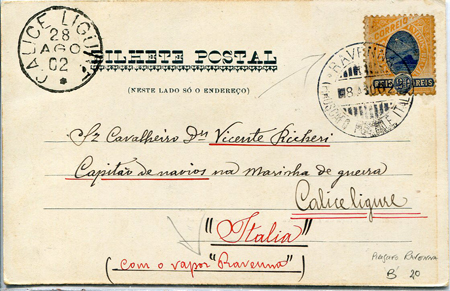 CALICE LIGURE
28
AGO
02
BILHETE POSTAL
(NESTE LADO SÓ O ENDEREÇO)
CORREIO
REIS REIS
RAVENNA
Sr. Cavalheiro Dr. Vicente Richeri
Capitão de navios na Marinha de guerra
Calice ligure
"Italia"
(com o vapor "Ravenna")
Ravenna
20